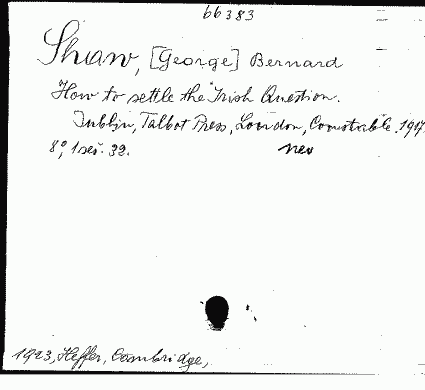 66383
Shaw, [George] Bernard
How to settle the Irish Question.
Dublin, Talbot Press, London, Constable. 1917.
8°, 1 ser. 32.
1923, Heffer, Cambridge,